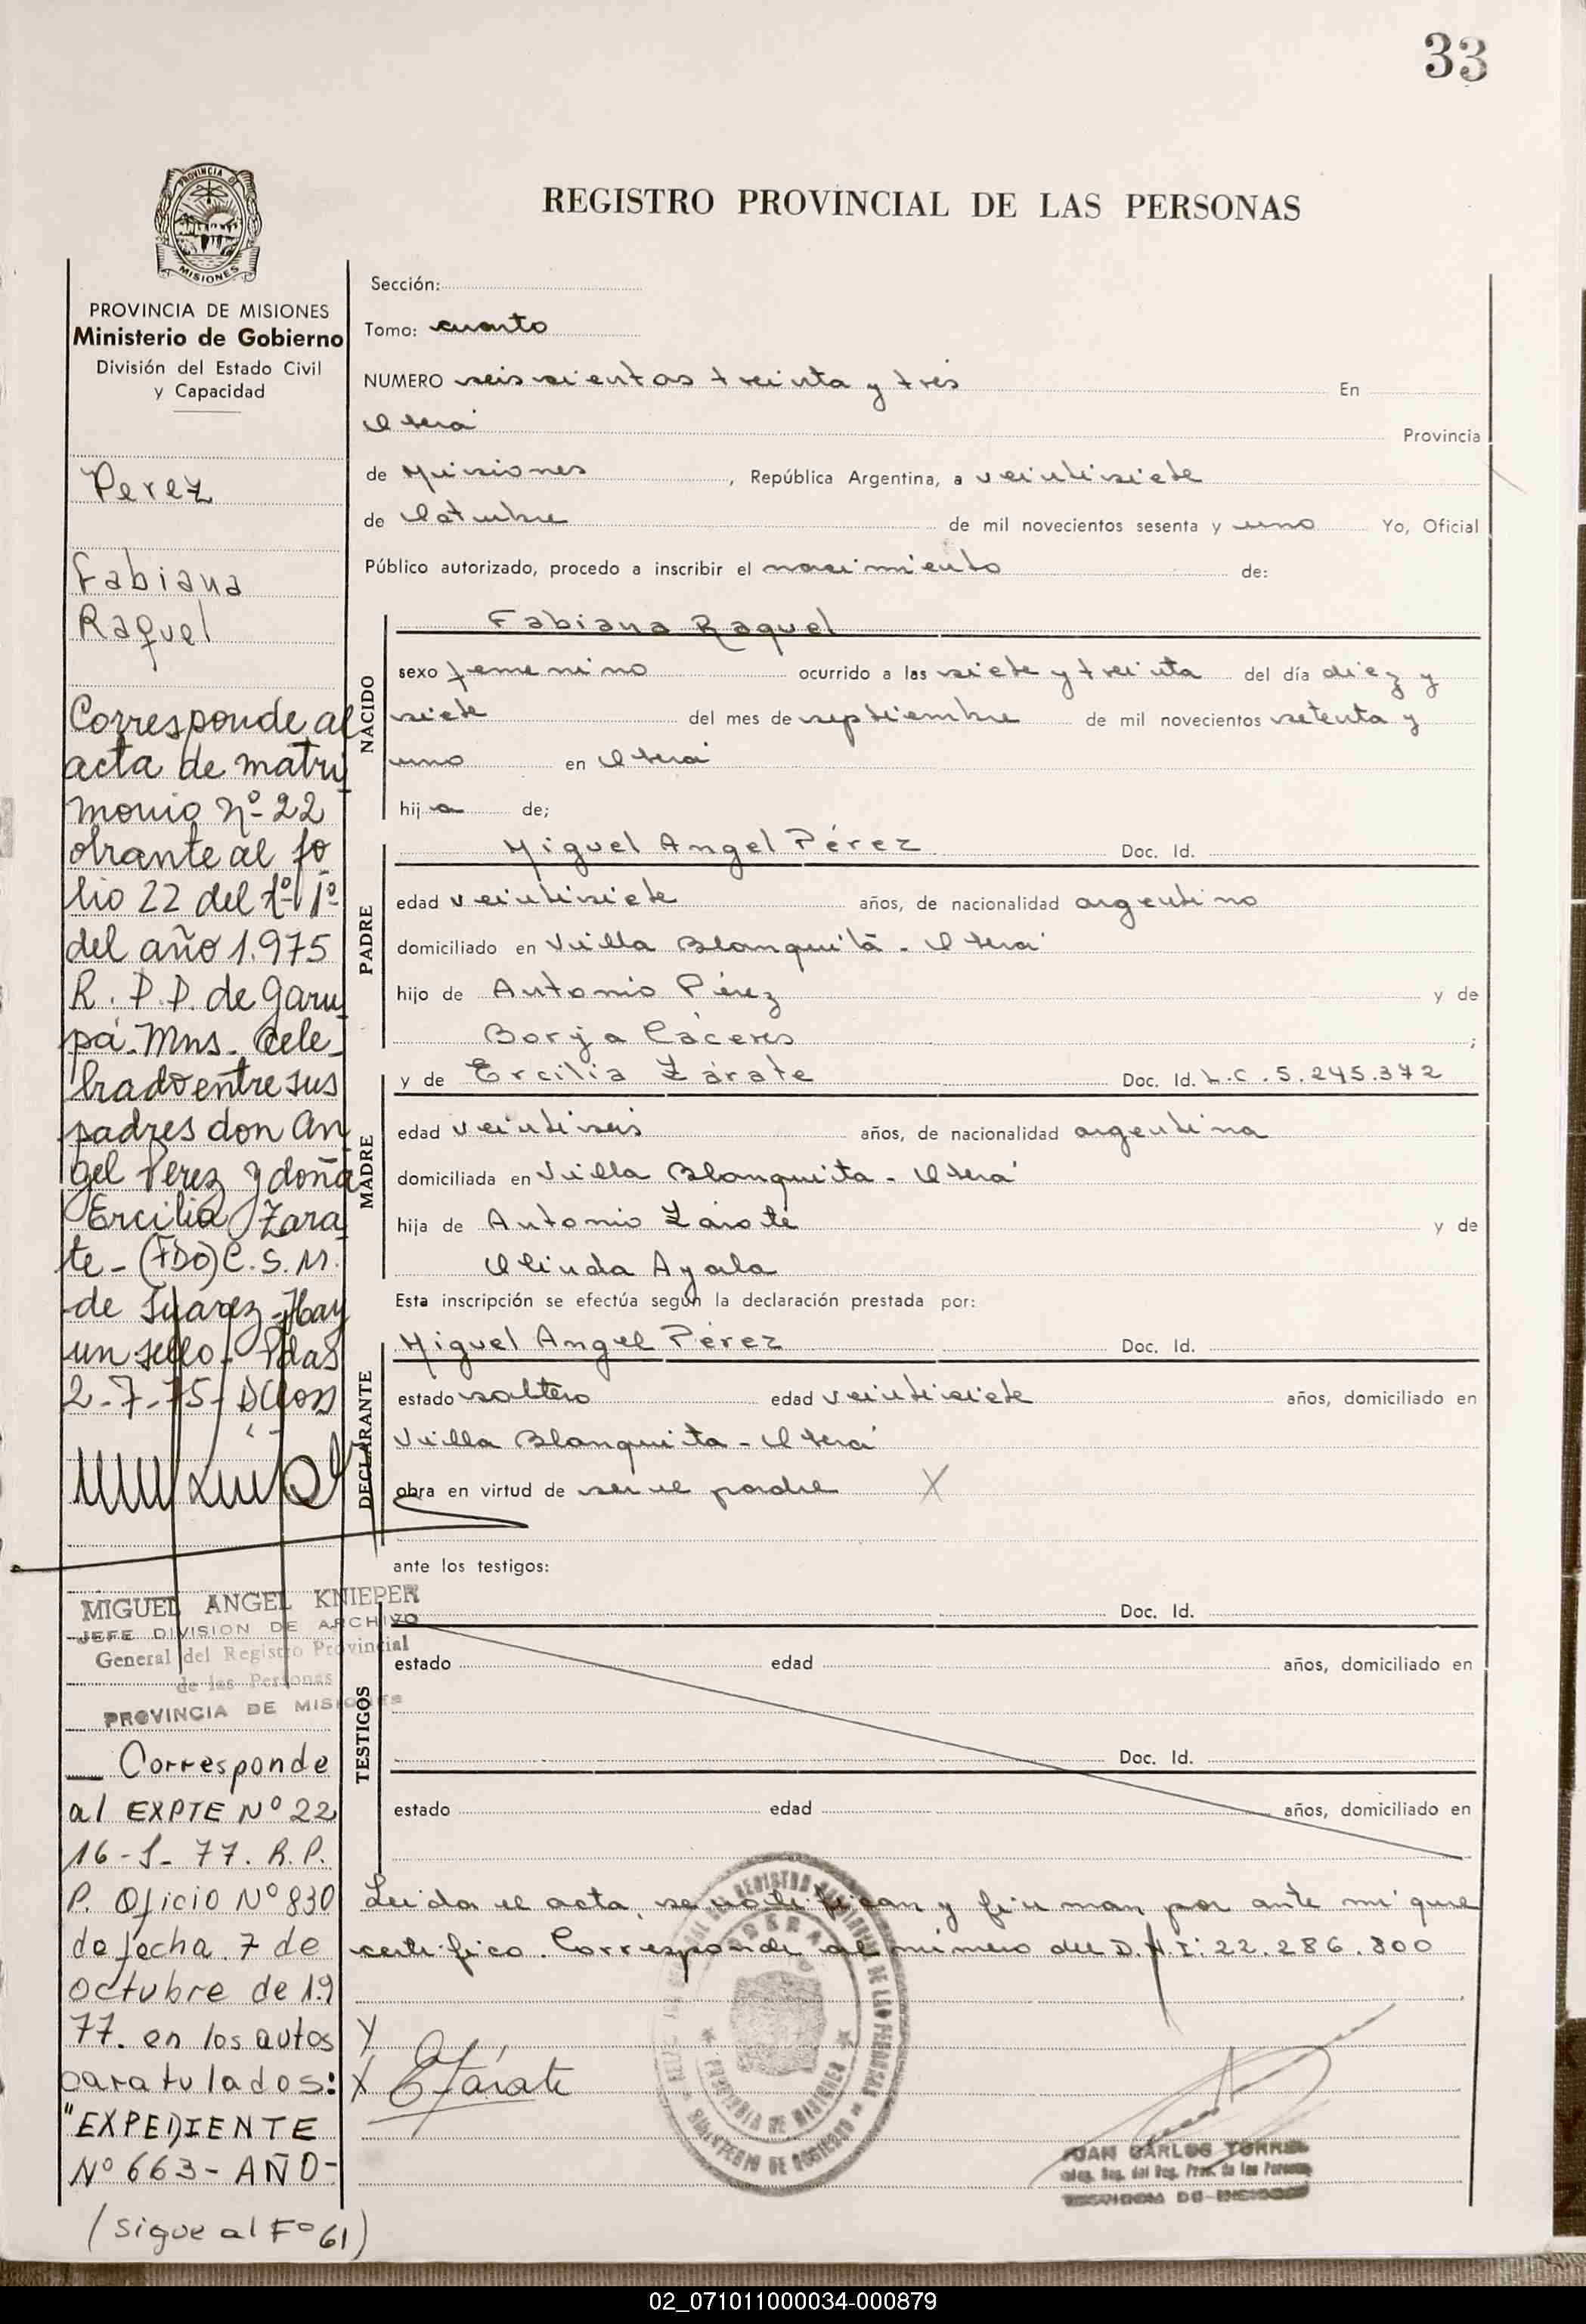 33
PROVINCIA DE
MISIONES
REGISTRO PROVINCIAL DE LAS PERSONAS
PROVINCIA DE MISIONES
Ministerio de Gobierno
División del Estado Civil
y Capacidad
Perez
Fabiana
Raquel
Corresponde al
acta de matri
monio nº 22
obrante al fo
lio 22 del tº 1º
del año 1.975
R. P. P. de Garu
pá. Mns. Cele_
brado entre sus
padres don An
gel Perez y doña
Ercilia Zara
te - (FDO) C. S. M.
de Juarez - Hay
un sello - Pdas
2-7-75 -
MIGUEL ANGEL KNIEPER
JEFE DIVISION DE ARCHIVO
General del Registro Provincial
de las Personas
PROVINCIA DE MISIONES
Corresponde
al EXPTE Nº 22
16 - J - 77. R. P.
P. Oficio Nº 830
de fecha 7 de
octubre de 19
77. en los autos
caratulados:
"EXPEDIENTE
Nº 663 - AÑO -
(sigue al Fº 61)
Sección:
Tomo: cuarto
NUMERO seissientas treinta y tres En
Oberá Provincia
de Misiones, República Argentina, a veintisiete
de Octubre de mil novecientos sesenta y uno Yo, Oficial
Público autorizado, procedo a inscribir el nacimiento de:
NACIDO
Fabiana Raquel
sexo femenino ocurrido a las siete y treinta del día diez y
siete del mes de septiembre de mil novecientos setenta y
uno en Oberá
hij a de;
PADRE
Miguel Angel Pérez Doc. Id.
edad veintisiete años, de nacionalidad argentino
domiciliado en Villa Blanquita - Oberá
hijo de Antonio Pérez y de
Borja Cáceres ;
MADRE
y de Ercilia Zárate Doc. Id. L.C. 5.245.372
edad veintiseis años, de nacionalidad argentina
domiciliada en Villa Blanquita - Oberá
hija de Antonio Zárate y de
Olinda Ayala
Esta inscripción se efectúa según la declaración prestada por:
DECLARANTE
Miguel Angel Pérez Doc. Id.
estado soltero edad veintisiete años, domiciliado en
Villa Blanquita - Oberá
obra en virtud de ser el padre X
ante los testigos:
TESTIGOS
Doc. Id.
estado edad años, domiciliado en
Doc. Id.
estado edad años, domiciliado en
Leida el acta, se notifican y firman por ante mi que
certifico. Corresponde al número del D.N.I: 22.286.800
Y
X EZárate
OBERA
PROVINCIA DE MISIONES
MINISTERIO DE GOBIERNO
JUAN CARLOS TORRES
PROVINCIA DE MISIONES
02_071011000034-000879